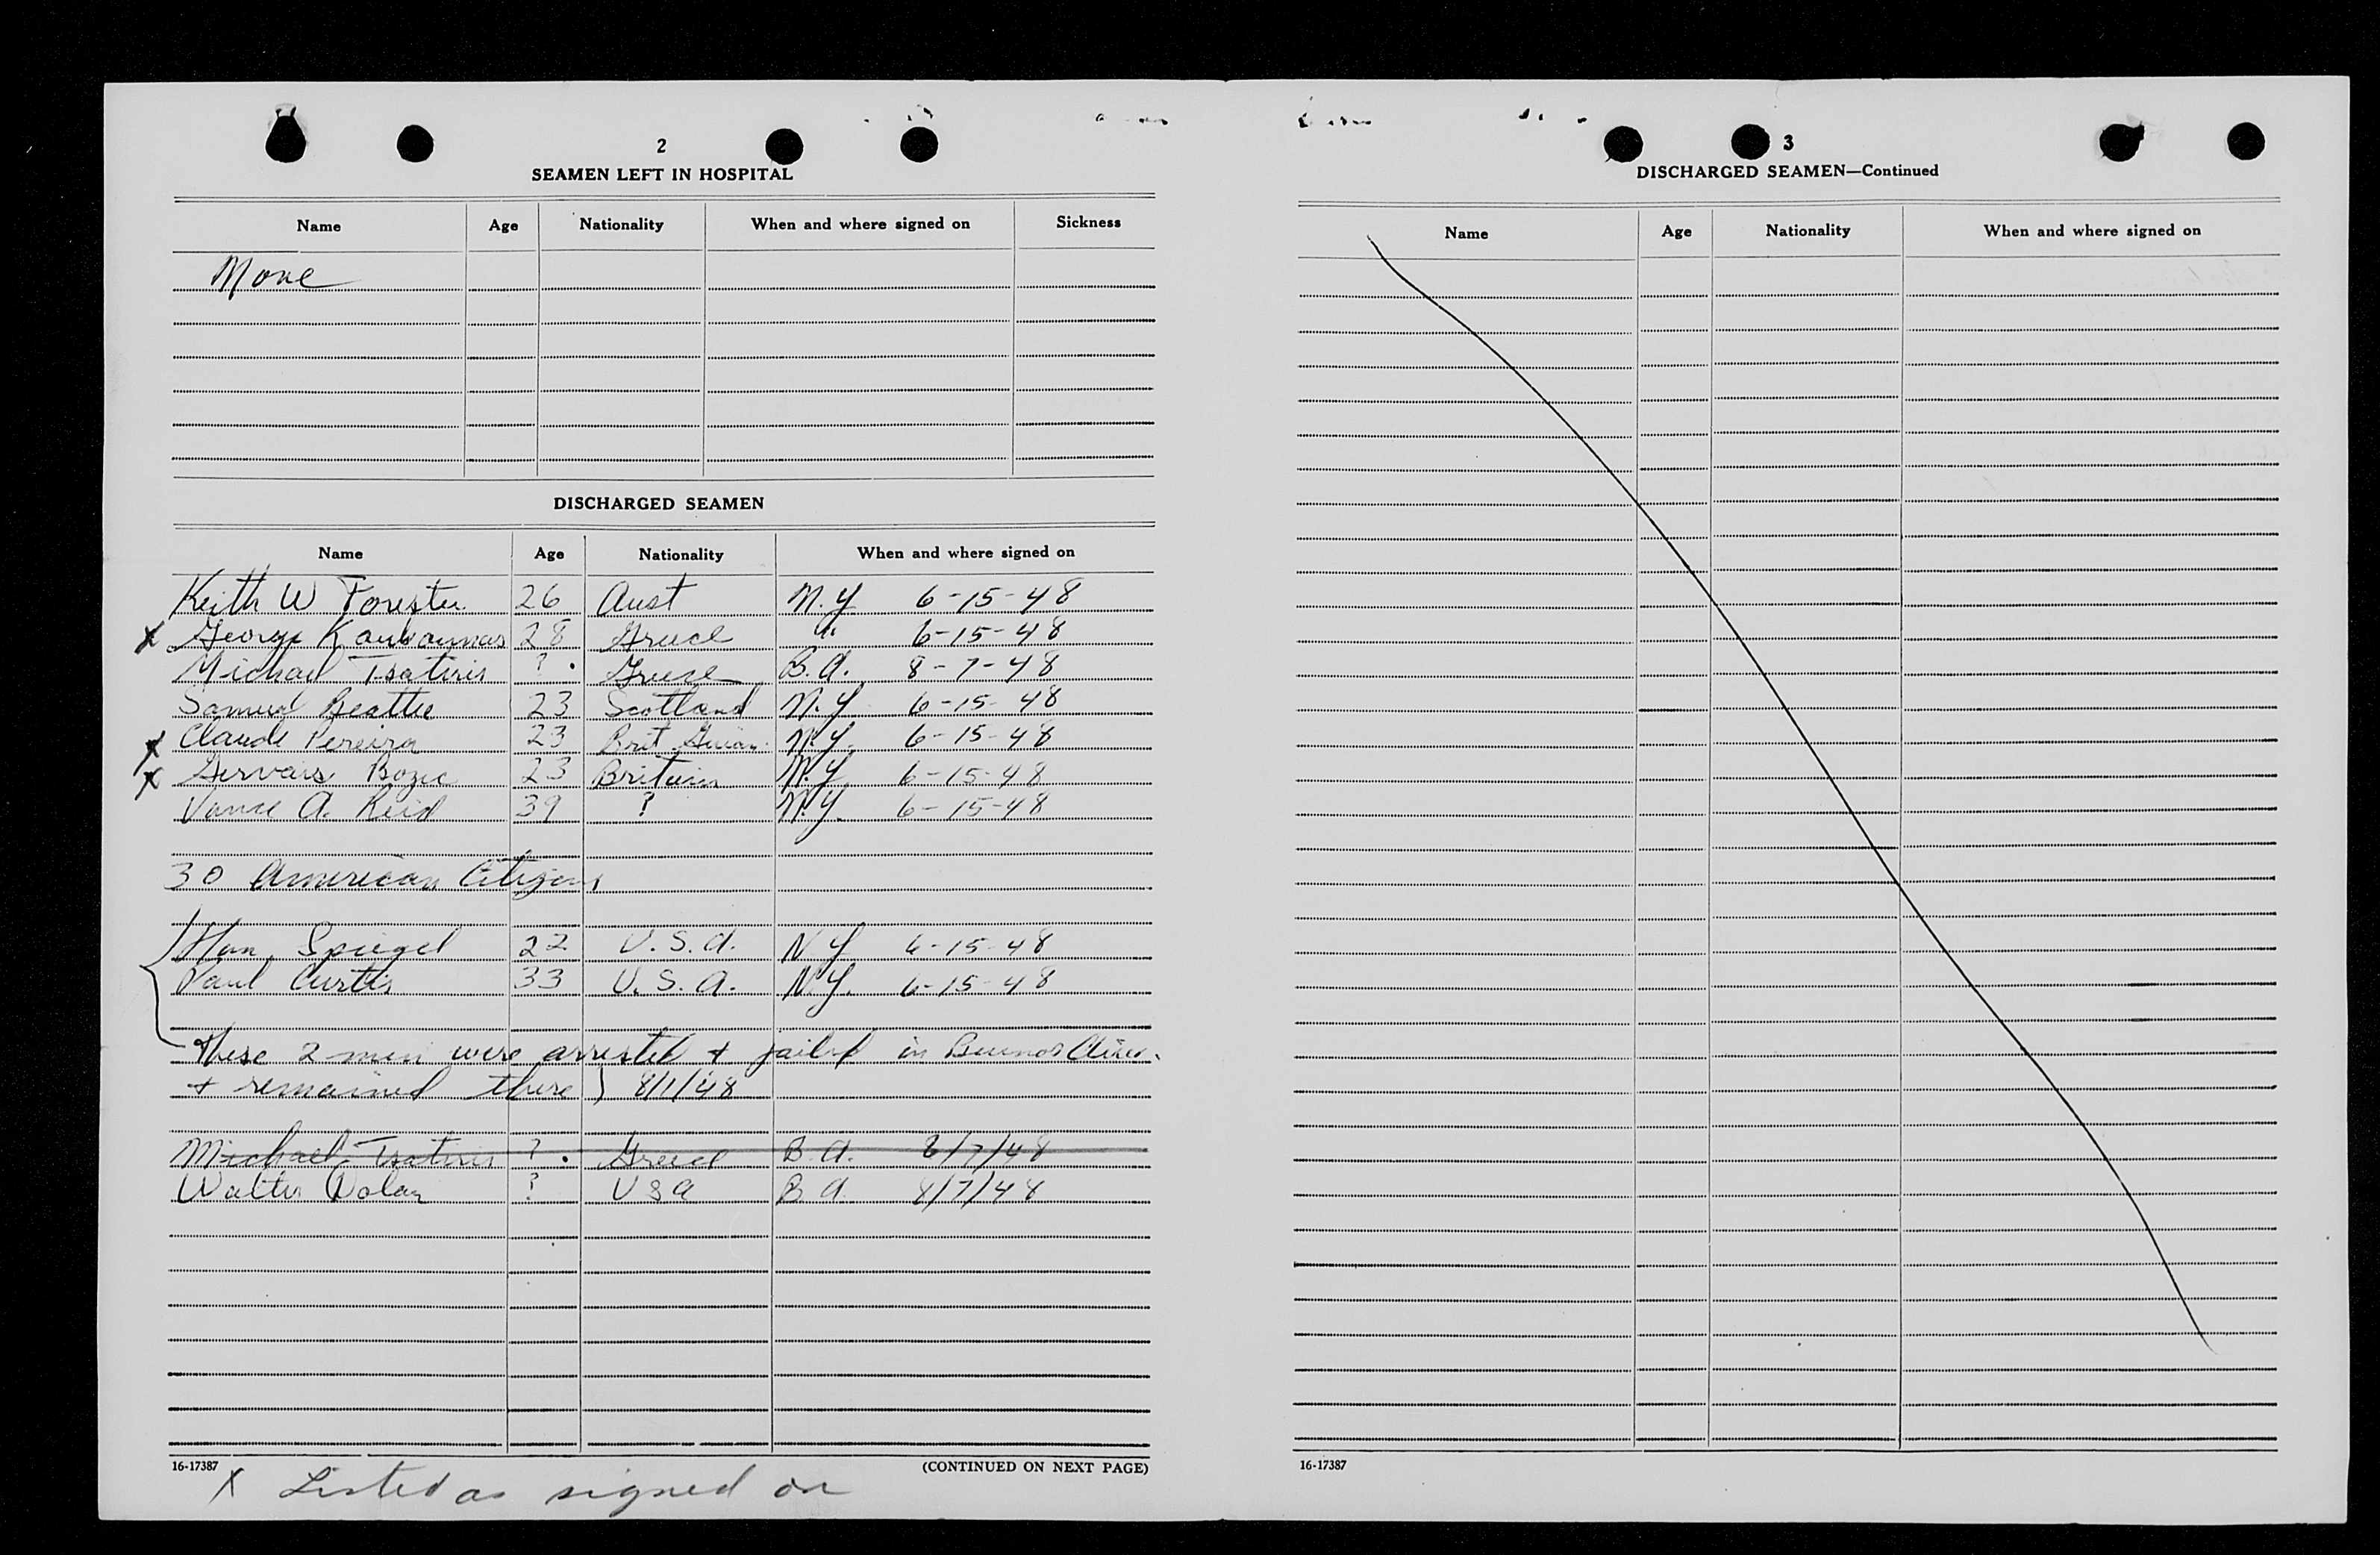 2
SEAMEN LEFT IN HOSPITAL
Name Age Nationality When and where signed on Sickness
None
DISCHARGED SEAMEN
Name Age Nationality When and where signed on
Keith W Forester 26 Aust N.Y 6-15-48
X George 28 Greece " 6-15-48
Michael Tsatiris ? Greece B.A. 8-7-48
Samuel Beattie 23 Scotland N.Y 6-15-48
X Claude Pereira 23 Brit Guian N.Y. 6-15-48
X Gervais Bozec 23 Britain N.Y 6-15-48
Vance A. Reid 39 ? N.Y. 6-15-48
30 American Citizens
Spiegel 22 U.S.A. N Y 6-15-48
Paul Curtis 33 U.S.A. N.Y. 6-15-48
These 2 men were arrested + jailed in Buenos Aires
+ remained there ) 8/1/48
Michael Tsatiris ? Greece B.A. 8/7/48
Walter Nolan ? USA B.A. 8/7/48
16-17387 (CONTINUED ON NEXT PAGE)
X Listed as signed on
3
DISCHARGED SEAMEN—Continued
Name Age Nationality When and where signed on
16-17387